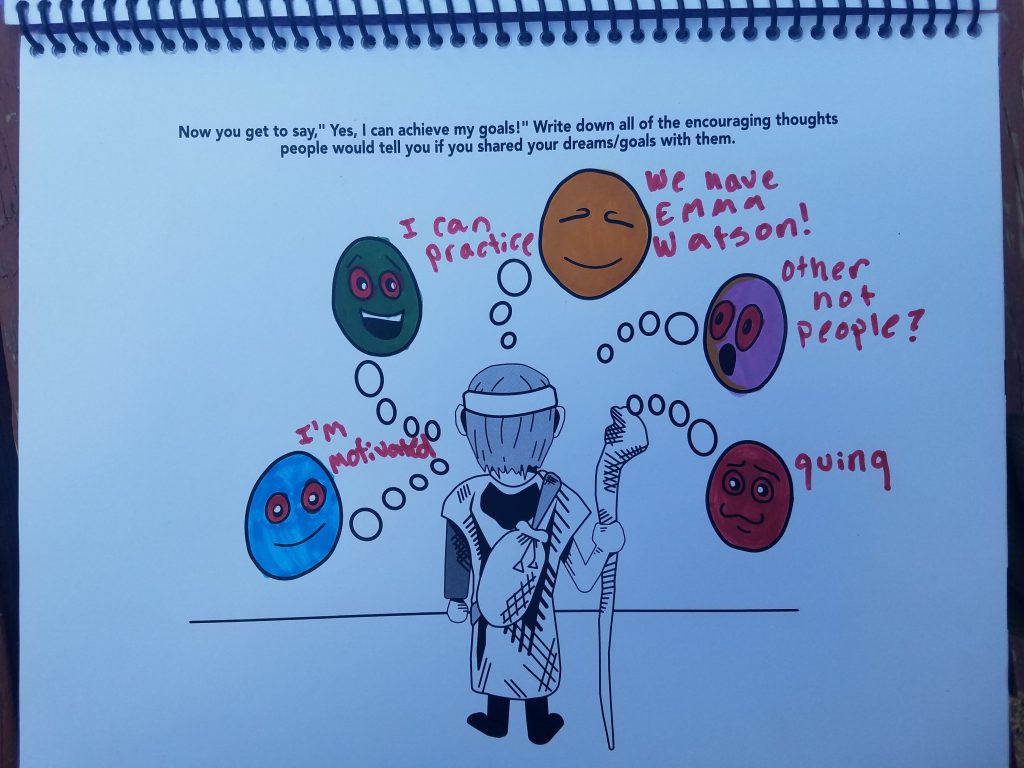 Now you get to say," Yes, I can achieve my goals!" Write down all of the encouraging thoughts
people would tell you if you shared your dreams/goals with them.
I can
practice
We have
Emma
Watson!
other
not
people?
I'm
motivated
quing